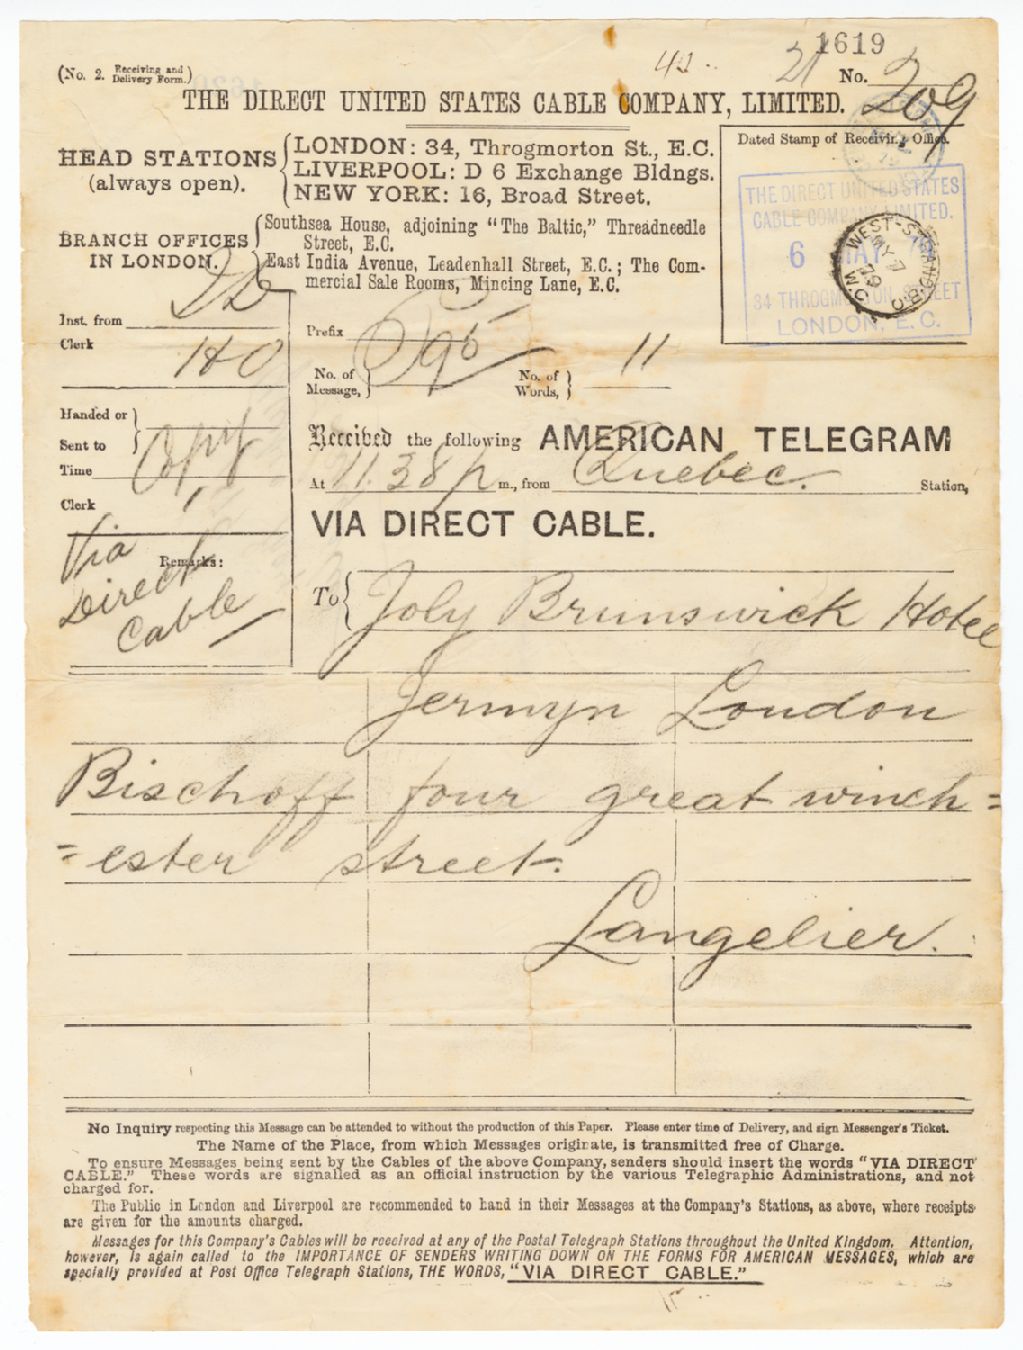 1619
(No. 2. Receiving and Delivery Form.)
42
21 No. 209
THE DIRECT UNITED STATES CABLE COMPANY, LIMITED.
HEAD STATIONS (always open).
LONDON: 34, Throgmorton St., E.C.
LIVERPOOL: D 6 Exchange Bldngs.
NEW YORK: 16, Broad Street.
BRANCH OFFICES IN LONDON.
Southsea House, adjoining "The Baltic," Threadneedle
Street, E.C.
East India Avenue, Leadenhall Street, E.C.; The Com-
mercial Sale Rooms, Mincing Lane, E.C.
Dated Stamp of Receiving Office.
THE DIRECT UNITED STATES
CABLE COMPANY LIMITED.
6 MAY 79
34 THROGMORTON STREET
LONDON, E.C.
WEST-STRAND.B.O
W.C.
MY 7
79
Inst. from
Clerk 180
Prefix
No. of Message, 95
No. of Words, 11
Handed or
Sent to
Time
Copy
Clerk
Remarks:
Via
Direct
Cable
Received the following AMERICAN TELEGRAM
At 11.38 p m., from Quebec. Station,
VIA DIRECT CABLE.
To Joly Brunswick Hotel
Jermyn London
Bischoff four great winch=
=ester street.
Langelier.
No Inquiry respecting this Message can be attended to without the production of this Paper. Please enter time of Delivery, and sign Messenger's Ticket.
The Name of the Place, from which Messages originate, is transmitted free of Charge.
To ensure Messages being sent by the Cables of the above Company, senders should insert the words "VIA DIRECT
CABLE." These words are signalled as an official instruction by the various Telegraphic Administrations, and not
charged for.
The Public in London and Liverpool are recommended to hand in their Messages at the Company's Stations, as above, where receipts
are given for the amounts charged.
Messages for this Company's Cables will be received at any of the Postal Telegraph Stations throughout the United Kingdom. Attention,
however, is again called to the IMPORTANCE OF SENDERS WRITING DOWN ON THE FORMS FOR AMERICAN MESSAGES, which are
specially provided at Post Office Telegraph Stations, THE WORDS, "VIA DIRECT CABLE."